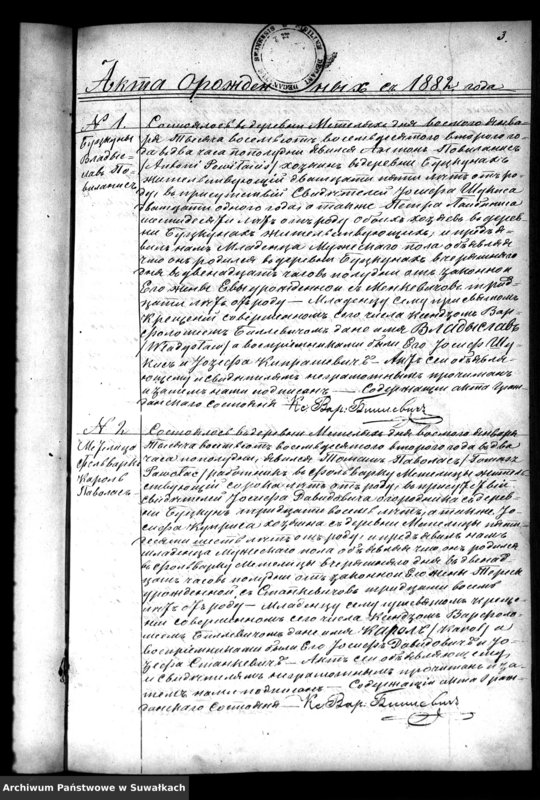 3
Акта о рожденныхъ съ 1882 года
№ 1.
Буцкуны
Владыславъ
Состоялось въ деревни Метелахъ дня восмого января
тысяча восемьсотъ восемьдесятого второго года
въ два часа пополудни явился Антонъ
хозяинъ въ деревни Буцкунахъ
жительствующій двадцати пяти лѣтъ отъ роду
въ присутствіи Свидѣтелей Іосифа
двадцати одного года а также Петра
лѣтъ отъ роду обоихъ хозяевъ въ деревни
Буцкунахъ жительствующихъ, и предъявилъ
намъ Младенца Мужескаго пола объявляя
что онъ родился въ деревни Буцкунахъ вчерашняго
дня въ двенадцать часовъ полудни отъ законной
Его жены Евы урожденной
лѣтъ отъ роду — Младенцу сему при святомъ
Крещеніи совершенномъ сего числа Ксендзомъ Варфоломеемъ
Билевичомъ дано имя Владыславъ
а воспріемниками были Его Іосифъ
и Іозефа — Актъ сей объявляющему
и свидѣтелямъ неграмотнымъ прочитанъ
и затемъ нами подписанъ — Содержащій акта Гражданского
состоянія Кс. Вар: Билевичъ
№ 2.
Метелица
Фольваркъ
Кароль
Состоялось въ деревни Метелахъ дня восмого января
тысяча восемьсотъ восемьдесятого второго года въ два
часа пополудни, явился Томашъ
работникъ въ фольварку Метелицы жительствующій
сорока лѣтъ отъ роду въ присутствіи
Свидѣтелей Іосифа Давидовича огородника съ деревни
Буцкунъ тридцати восемь лѣтъ, а также Іосифа
хозяина съ деревни Метелицы пятидесяти
шесть лѣтъ отъ роду; и предъявилъ намъ
младенца Мужескаго пола объявляя что онъ родился
въ фольварку Метелицы вчерашняго дня въ двенадцать
часовъ полудни отъ законной Его жены Терезы
урожденной съ Станкевичовъ тридцати восемь
лѣтъ отъ роду — Младенцу сему при святомъ крещеніи
совершенномъ сего числа Ксендзомъ Варфоломеемъ
Билевичомъ дано имя Кароль (Karol) а
воспріемниками были Его Іосифъ Давидовичъ и Іозефа
Станкевичъ — Актъ сей объявляющему
и свидѣтелямъ неграмотнымъ прочитанъ и затемъ
нами подписанъ — Содержащій акта Гражданского
состоянія — Кс. Вар: Билевичъ
Archiwum Państwowe w Suwałkach